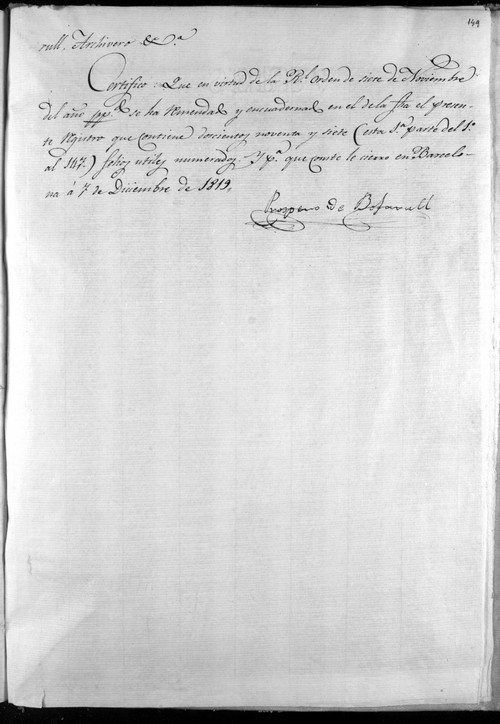 149
rull, Archivero &.ª
Certifico: Que en virtud de la R.l orden de siete de Noviembre
del año pp.º se ha remendado y encuadernado en el de la fha el presen-
te Registro que contiene doscientos noventa y siete (esta 1.ª parte del 1.º
al 147.) folios utiles numerados. Y p.ª que conste le cierro en Barcelo-
na á 7 de Diciembre de 1819.
Prospero de Bofarull